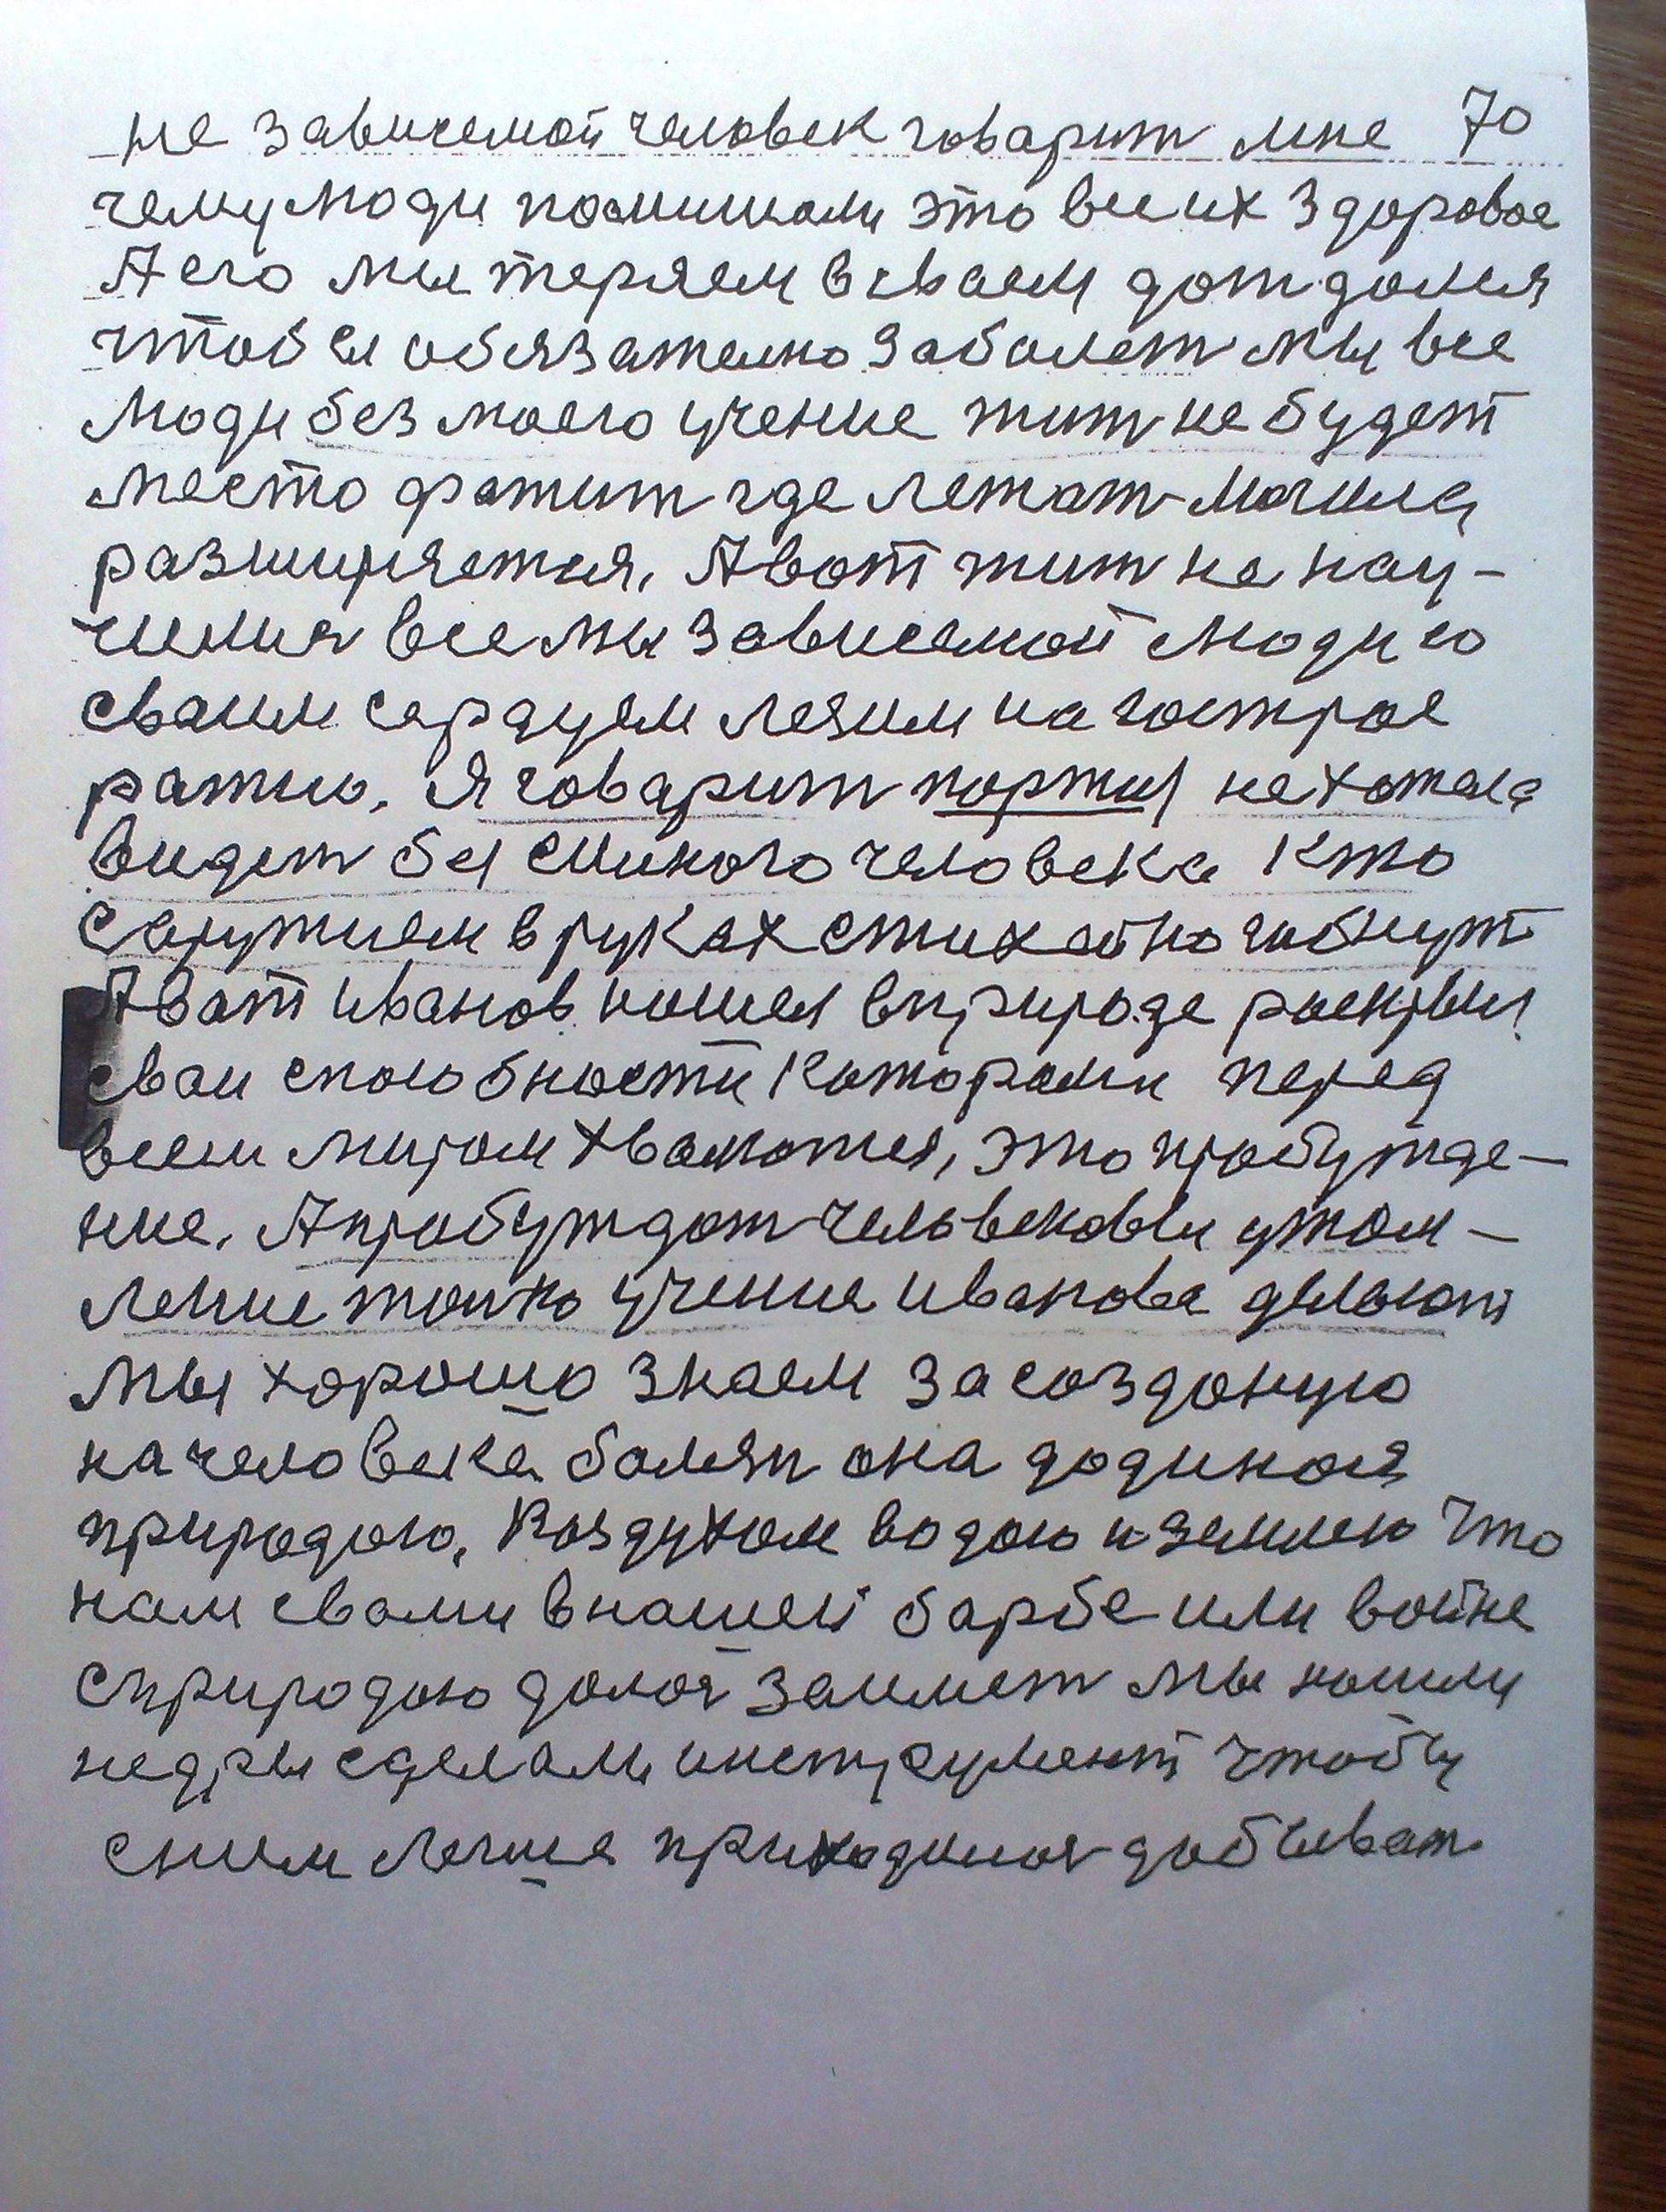 не зависемой человек говарит мне 70
чему люди помишали это всеих здоровое
А его мы теряем в сваем дождомся
чтобы обязателно заболет мы все
люди без моего учение жит не будет
место фатит где лежат могила
разширяется, А вот жит не нау-
чился все мы зависемой люди со
сваим сердцем лезим на гострое
ратно. Я говарит портил не хотела
видет бы силного человека кто
с аружием в руках стихейно гибнут
А ват Иванов нашел в природе раскрыл
сваи способности каторами перед
всем миром хвалются, это пробужде-
ние. А прабуждат человековы утом-
ление толко учение Иванова делают
Мы хорошо знаем за созданую
на человека болят она додиная
природою, Воздухом водою и землею что
нам свами в нашей барбе или войне
с природою долог заимет мы нашли
недры сделали инструмент чтобы
с ним легше приходился добыват